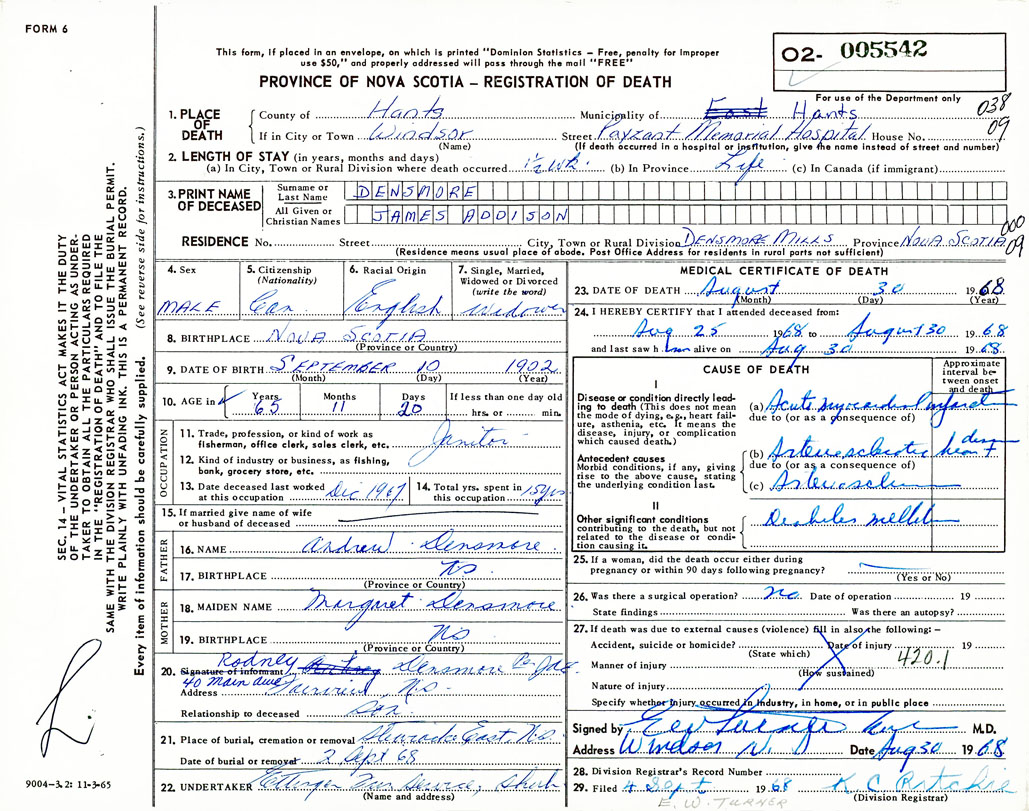 FORM 6
This form, if placed in an envelope, on which is printed "Dominion Statistics – Free, penalty for improper
use $50," and properly addressed will pass through the mail "FREE"
PROVINCE OF NOVA SCOTIA – REGISTRATION OF DEATH
02- 005542
For use of the Department only
038
09
1. PLACE OF DEATH
County of Hants Municipality of East Hants
If in City or Town Windsor Street Payzant Memorial Hospital House No.
(Name) (If death occurred in a hospital or institution, give the name instead of street and number)
2. LENGTH OF STAY (in years, months and days)
(a) In City, Town or Rural Division where death occurred 1½ wk. (b) In Province Life (c) In Canada (if immigrant)
3. PRINT NAME OF DECEASED
Surname or Last Name DENSMORE
All Given or Christian Names JAMES ADDISON
000
09
RESIDENCE No. Street City, Town or Rural Division DENSMORE MILLS Province NOVA SCOTIA
(Residence means usual place of abode. Post Office Address for residents in rural parts not sufficient)
4. Sex
MALE
5. Citizenship (Nationality)
Can
6. Racial Origin
English
7. Single, Married, Widowed or Divorced (write the word)
Widower
8. BIRTHPLACE NOVA SCOTIA
(Province or Country)
9. DATE OF BIRTH SEPTEMBER 10 1902
(Month) (Day) (Year)
10. AGE in Years Months Days If less than one day old
65 11 20 hrs. or min.
OCCUPATION
11. Trade, profession, or kind of work as fisherman, office clerk, sales clerk, etc. Janitor
12. Kind of industry or business, as fishing, bank, grocery store, etc.
13. Date deceased last worked at this occupation Dec 1967
14. Total yrs. spent in this occupation 15 yrs
15. If married give name of wife or husband of deceased
FATHER
16. NAME Andrew Densmore
17. BIRTHPLACE NS
(Province or Country)
MOTHER
18. MAIDEN NAME Margaret Densmore
19. BIRTHPLACE NS
(Province or Country)
20. Signature of informant Rodney Densmore
Address 40 Main Ave Fairview, N.S.
Relationship to deceased Son
21. Place of burial, cremation or removal East, N.S.
Date of burial or removal 2 Sept 68
22. UNDERTAKER
(Name and address)
MEDICAL CERTIFICATE OF DEATH
23. DATE OF DEATH August 30 1968
(Month) (Day) (Year)
24. I HEREBY CERTIFY that I attended deceased from:
Aug 25 1968 to August 30 1968
and last saw him alive on Aug 30 1968
CAUSE OF DEATH
Approximate interval between onset and death
I
Disease or condition directly leading to death (This does not mean the mode of dying, e.g., heart failure, asthenia, etc. It means the disease, injury, or complication which caused death.)
(a) Acute myocardial infarct
due to (or as a consequence of)
Antecedent causes
Morbid conditions, if any, giving rise to the above cause, stating the underlying condition last.
(b) Arteriosclerotic heart disease
due to (or as a consequence of)
(c)
II
Other significant conditions
contributing to the death, but not related to the disease or condition causing it.
25. If a woman, did the death occur either during
pregnancy or within 90 days following pregnancy?
(Yes or No)
26. Was there a surgical operation? no. Date of operation 19
State findings Was there an autopsy?
27. If death was due to external causes (violence) fill in also the following: –
Accident, suicide or homicide? Date of injury 19
(State which)
420.1
Manner of injury
(How sustained)
Nature of injury
Specify whether injury occurred in industry, in home, or in public place
Signed by M.D.
Address Windsor N.S Date Aug 30 1968
28. Division Registrar's Record Number
29. Filed 4 Sept 1968 K C Ritchie
(Division Registrar)
E. W. TURNER
SEC. 14 – VITAL STATISTICS ACT MAKES IT THE DUTY
OF THE UNDERTAKER OR PERSON ACTING AS UNDER-
TAKER TO OBTAIN ALL THE PARTICULARS REQUIRED
IN THE "REGISTRATION OF DEATH" AND TO FILE THE
SAME WITH THE DIVISION REGISTRAR WHO SHALL ISSUE THE BURIAL PERMIT.
WRITE PLAINLY WITH UNFADING INK. THIS IS A PERMANENT RECORD.
Every item of information should be carefully supplied. (See reverse side for instructions.)
9004-3.2: 11-3-65